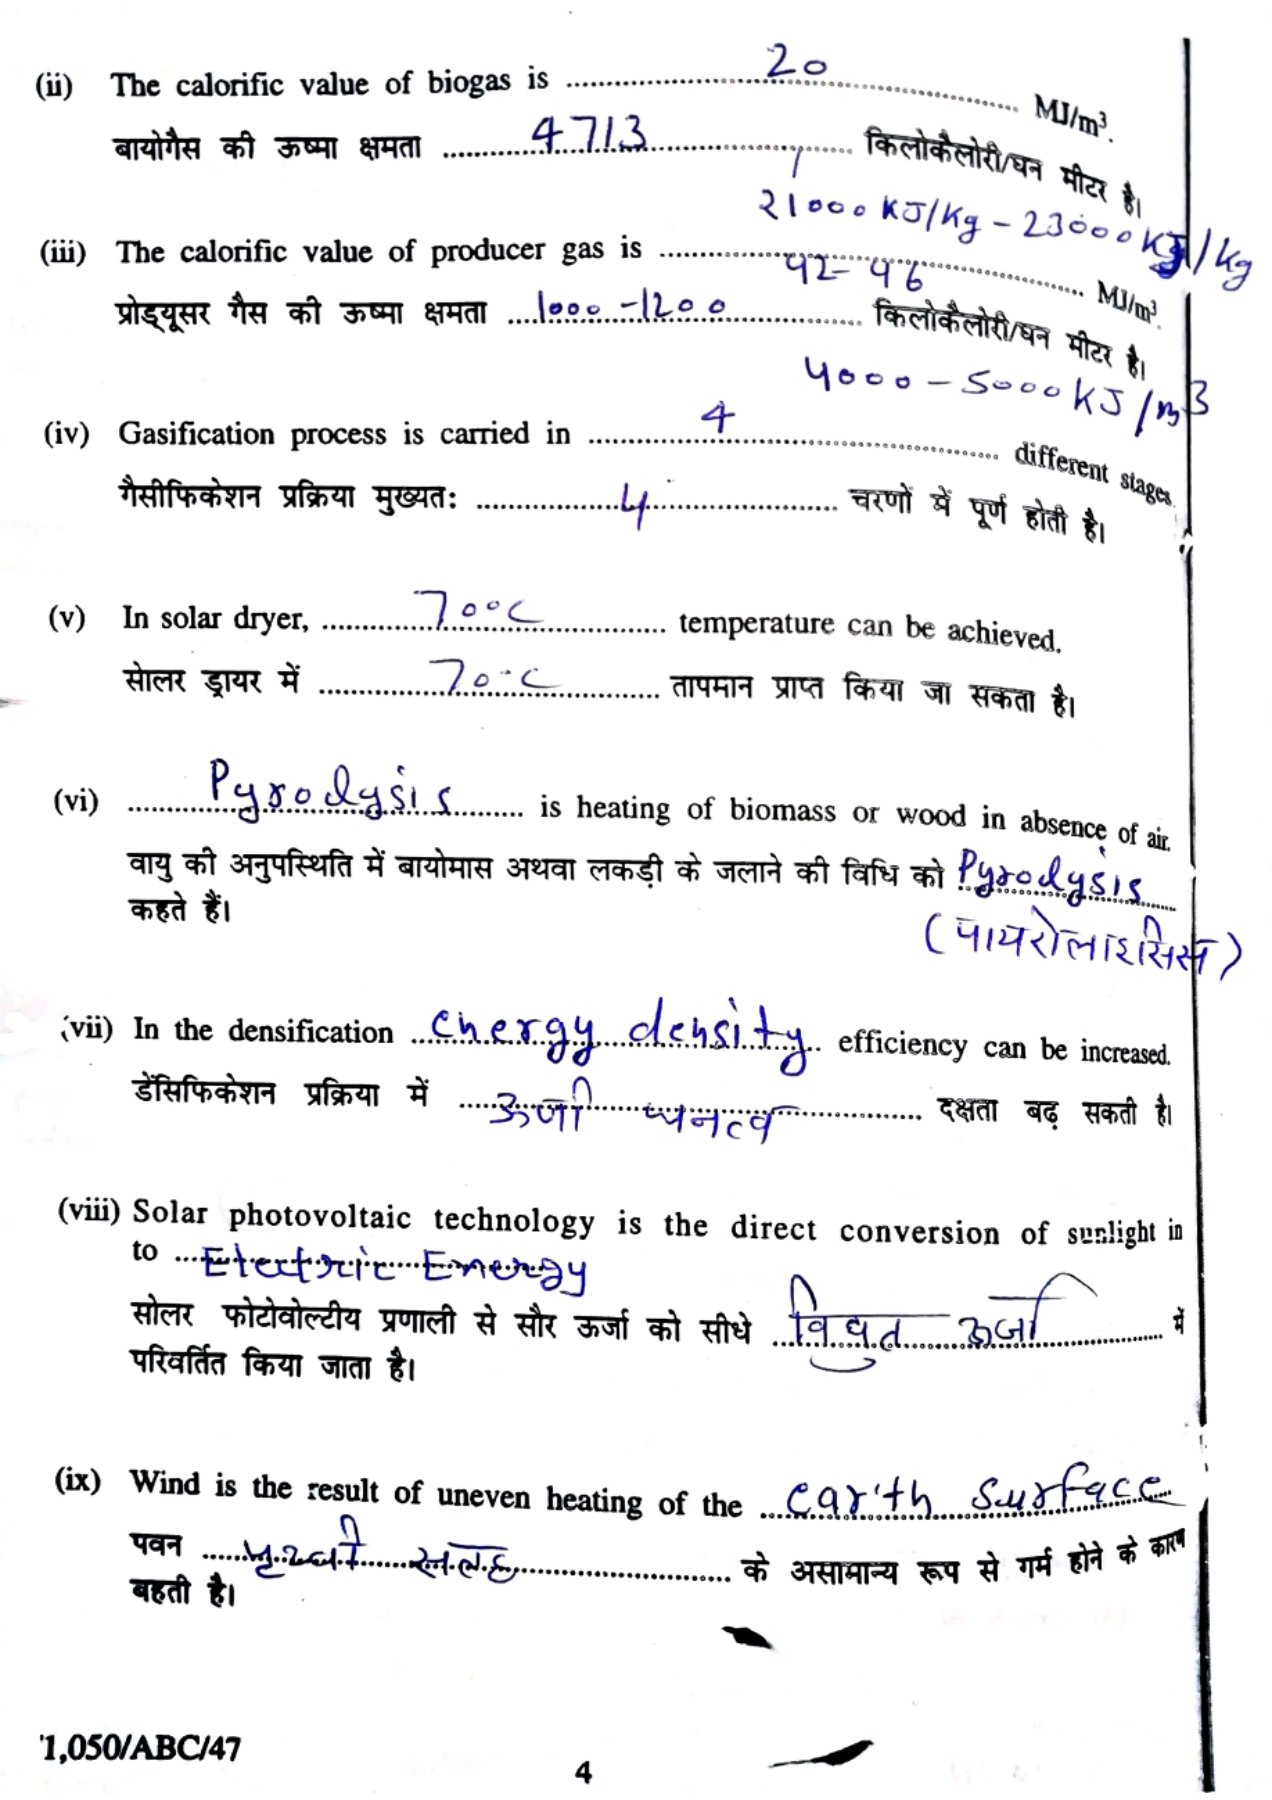 (ii) The calorific value of biogas is ........ 20 ........ MJ/m³.
बायोगैस की ऊष्मा क्षमता ........ 4713 ........ किलोकैलोरी/घन मीटर है।
21000 KJ/Kg - 23000 KJ/Kg
(iii) The calorific value of producer gas is ........ 42-46 ........ MJ/m³.
प्रोड्यूसर गैस की ऊष्मा क्षमता ....1000-1200........ किलोकैलोरी/घन मीटर है।
4000 - 5000 KJ/m3
(iv) Gasification process is carried in ........ 4 ........ different stages.
गैसीफिकेशन प्रक्रिया मुख्यतः ........ 4 ........ चरणों में पूर्ण होती है।
(v) In solar dryer, ........ 70°C ........ temperature can be achieved.
सोलर ड्रायर में ........ 70°C ........ तापमान प्राप्त किया जा सकता है।
(vi) ........ Pyrolysis ........ is heating of biomass or wood in absence of air.
वायु की अनुपस्थिति में बायोमास अथवा लकड़ी के जलाने की विधि को Pyrolysis
कहते हैं।
(पायरोलाइसिस)
(vii) In the densification ....energy density.... efficiency can be increased.
डेंसिफिकेशन प्रक्रिया में ........ ऊर्जा घनत्व ........ दक्षता बढ़ सकती है।
(viii) Solar photovoltaic technology is the direct conversion of sunlight in
to ....Electric Energy
सोलर फोटोवोल्टीय प्रणाली से सौर ऊर्जा को सीधे ....विद्युत ऊर्जा........ में
परिवर्तित किया जाता है।
(ix) Wind is the result of uneven heating of the ....earth surface....
पवन ........पृथ्वी सतह........ के असामान्य रूप से गर्म होने के कारण
बहती है।
1,050/ABC/47
4